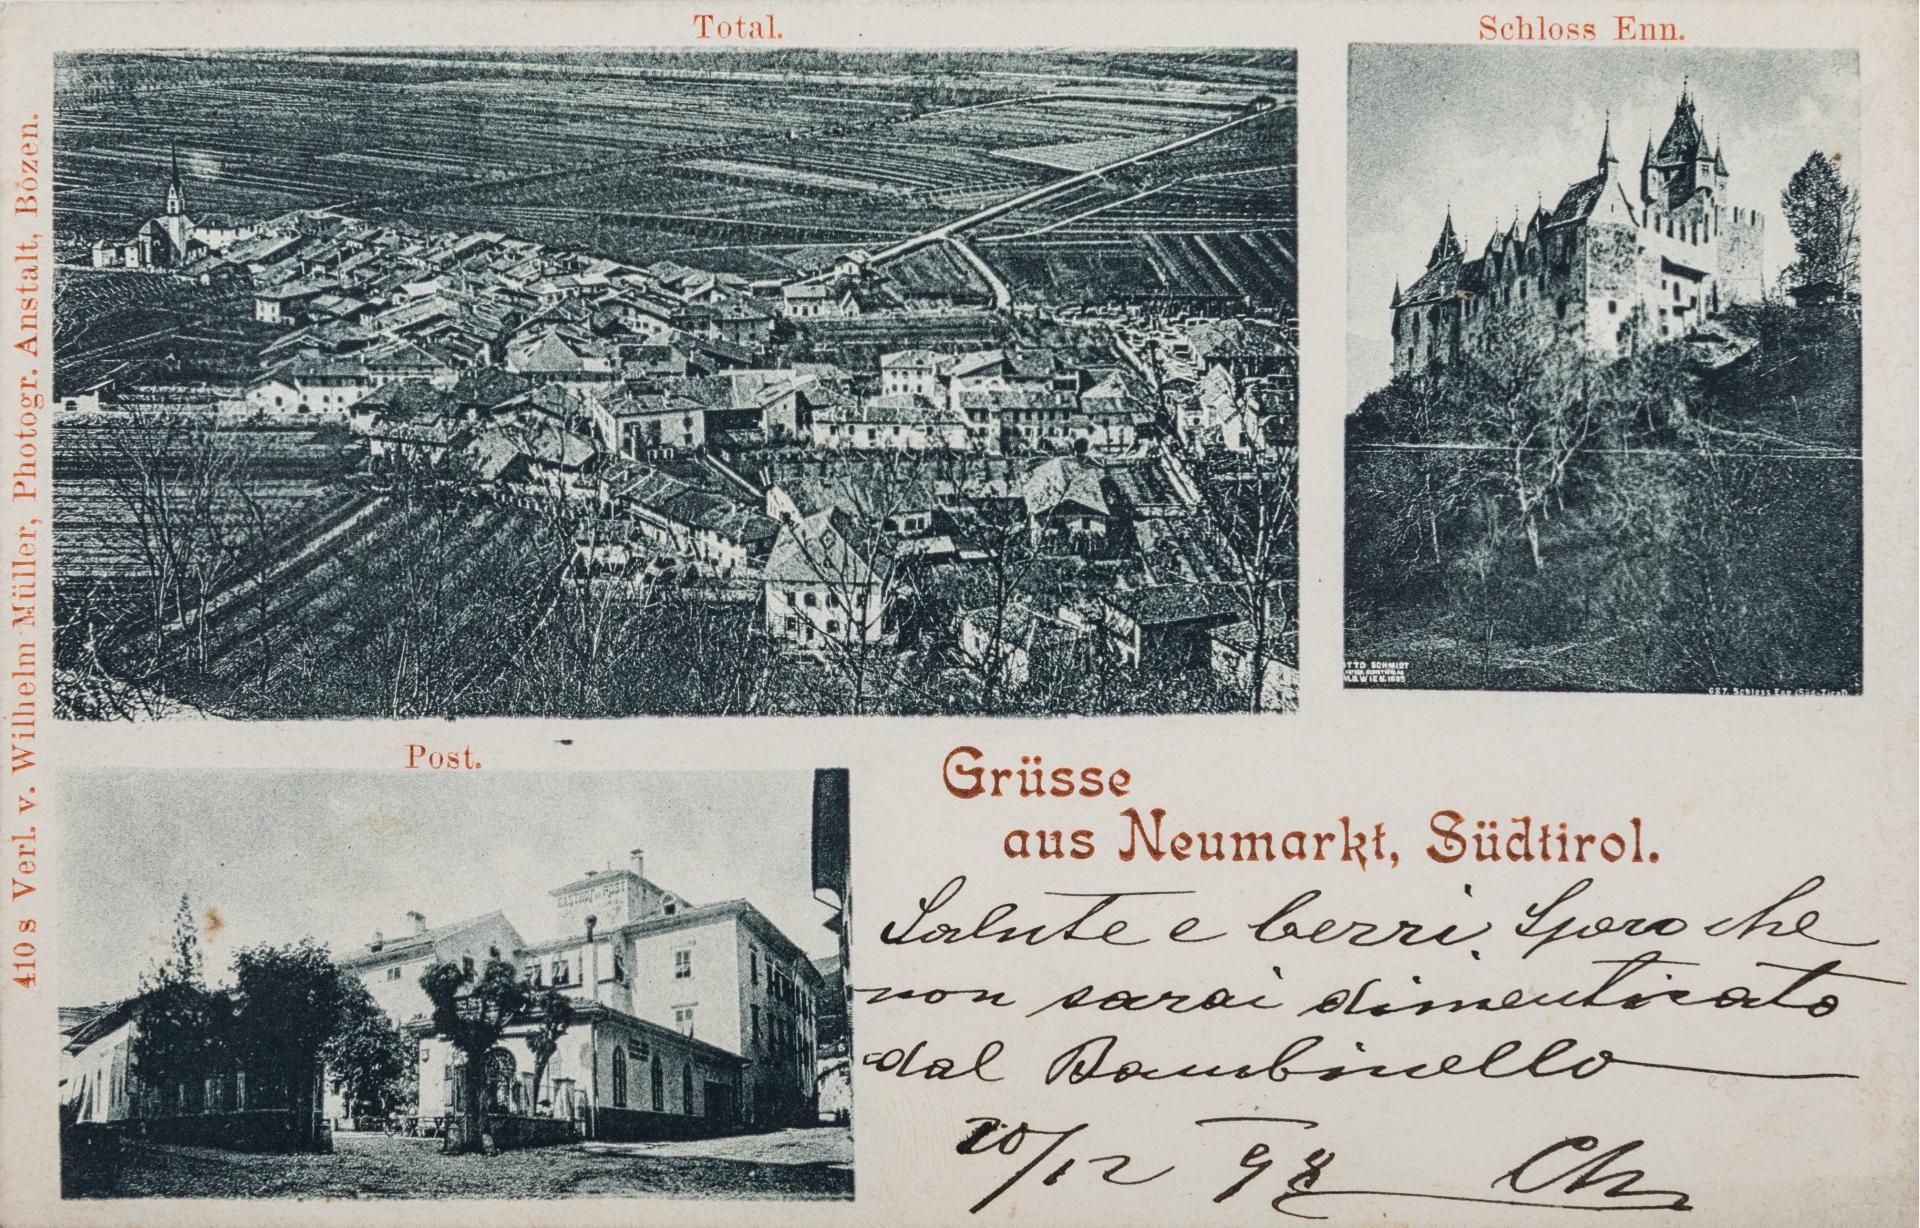 Total.
Schloss Enn.
410 s Verl. v. Wilhelm Müller, Photogr. Anstalt, Bozen.
OTTO SCHMIDT
WIEN. 1885
687. Schloss Enn (Süd-Tirol)
Post.
GASTHOF POST
Grüsse
aus Neumarkt, Südtirol.
Salute e berri. Spero che
non sarai dimenticato
dal Bambinello
20/12 98 Ch